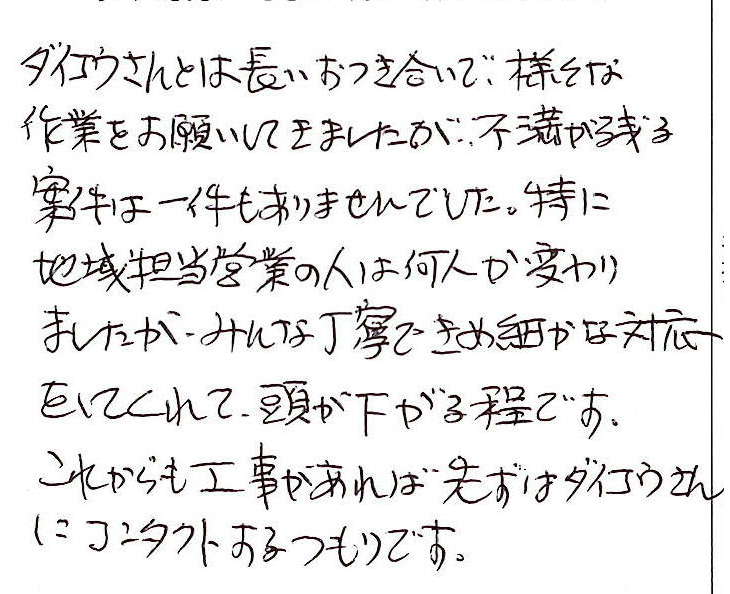 ダイコウさんとは長いおつき合いで、様々な
作業をお願いしてきましたが、不満が残る
案件は一件もありませんでした。特に
地域担当営業の人は何人か変わり
ましたが、みんな丁寧できめ細かな対応
をしてくれて、頭が下がる程です。
これからも工事があれば先ずはダイコウさん
にコンタクトするつもりです。